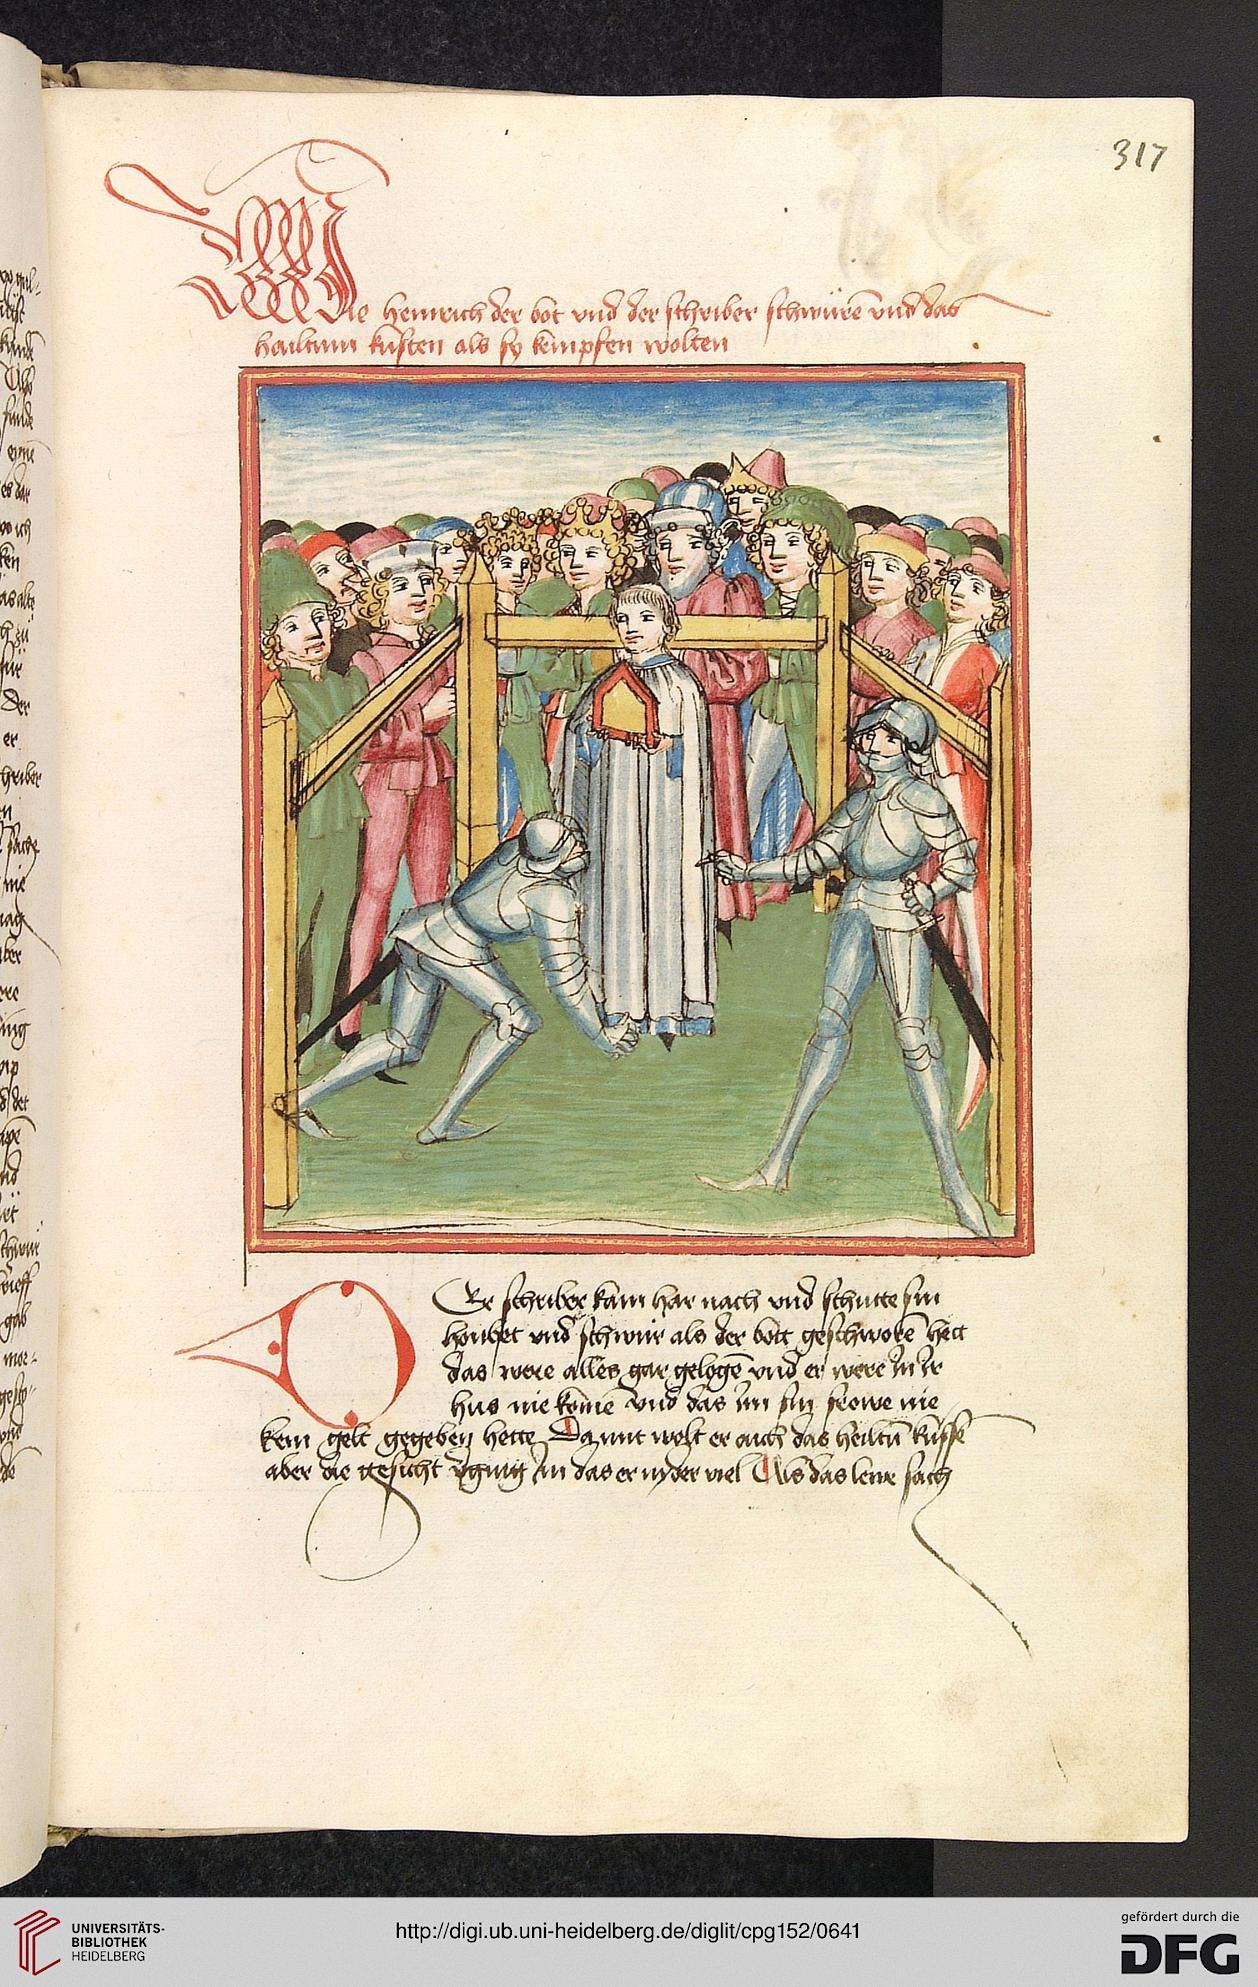 317
Wie heinrich der bot vnd der schriber schwürē vnd das
hailtum kusten als sy kempfen wolten
DEr schriber kam har nach vnd schutte sin
houbet vnd schwür als der bott geschworē hett
das were alles gar gelogē vnd er were In Ir
hus nie komē vnd das im sin frowe nie
kein gelt gegeben hette Da mit wolt er auch das heiltū küssē
aber die gesicht vgieng Im das er nyder viel Als das lewe sach
UNIVERSITÄTS-
BIBLIOTHEK
HEIDELBERG
http://digi.ub.uni-heidelberg.de/diglit/cpg152/0641
gefördert durch die
DFG